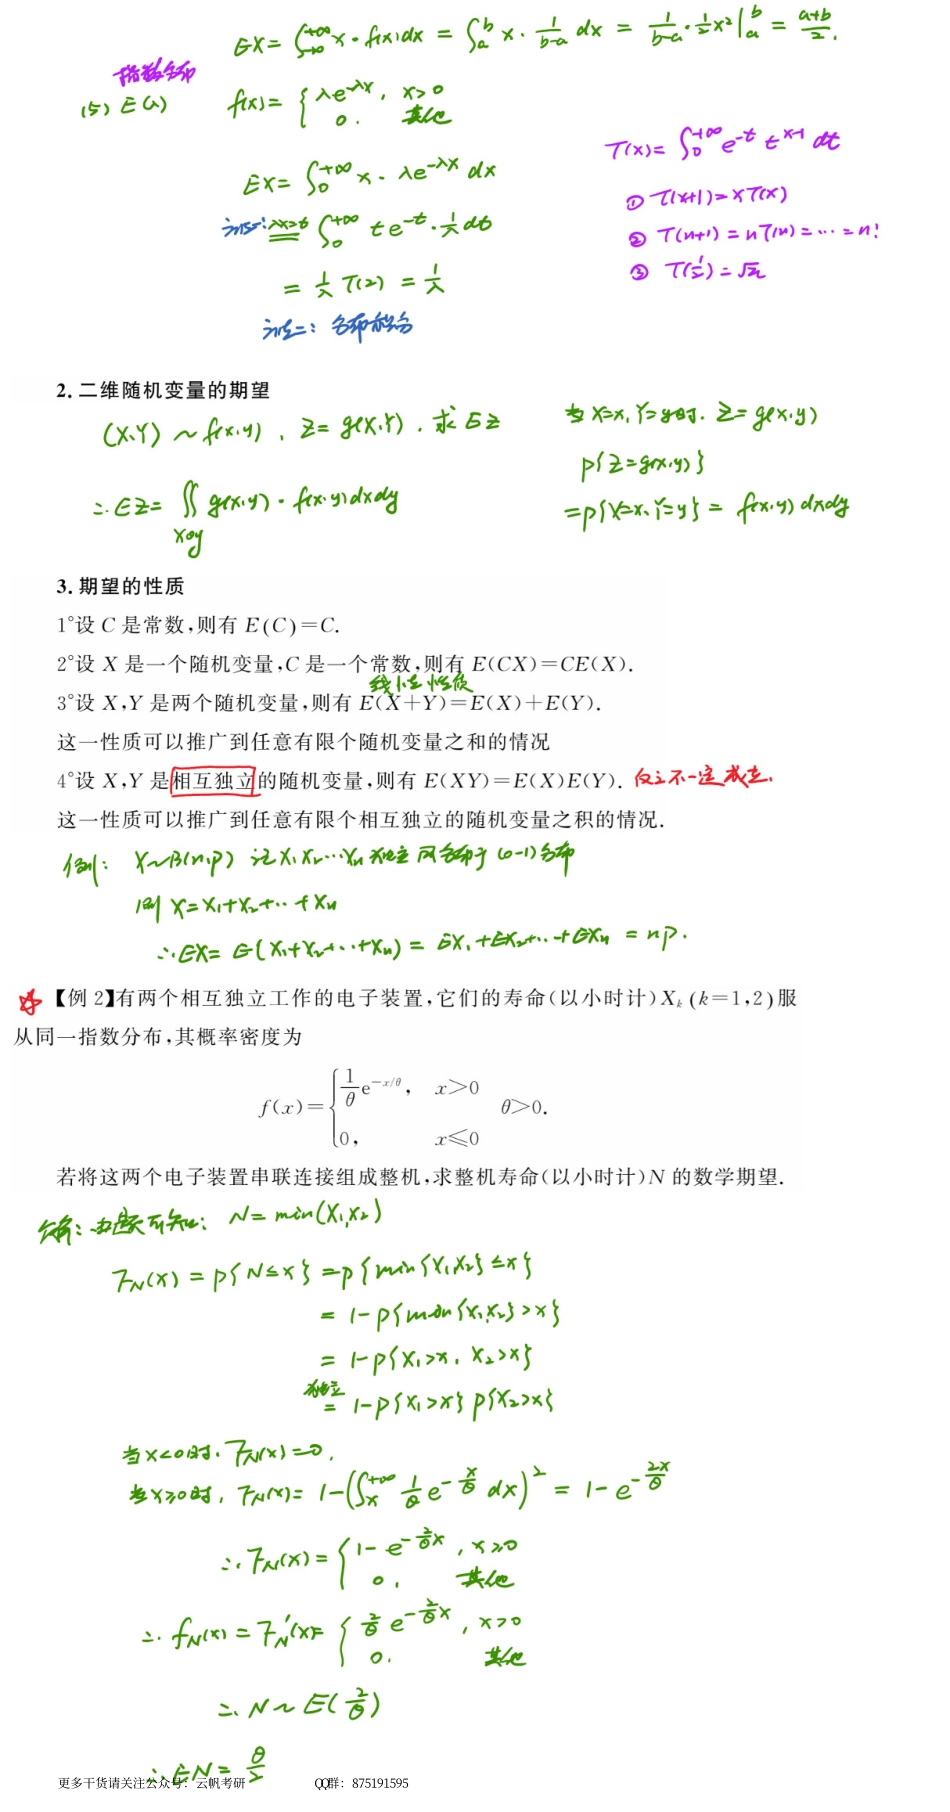 EX= ∫_{-∞}^{+∞} x·f(x)dx = ∫_a^b x·\frac{1}{b-a} dx = \frac{1}{b-a}·\frac{1}{2}x²|_a^b = \frac{a+b}{2}.
指数分布
(5) E(λ) f(x)= { λe^{-λx}, x>0
0. 其他
Γ(x)= ∫_0^{+∞} e^{-t} t^{x-1} dt
EX= ∫_0^{+∞} x·λe^{-λx} dx
① Γ(x+1)=xΓ(x)
法一: λx=t ∫_0^{+∞} te^{-t}·\frac{1}{λ}dt
② Γ(n+1)=nΓ(n)=···=n!
= \frac{1}{λ} Γ(2) = \frac{1}{λ}
③ Γ(\frac{1}{2})=√π
法二: 分部积分
2. 二维随机变量的期望
(X,Y)~f(x,y), Z=g(X,Y), 求EZ
当X=x,Y=y时. Z=g(x,y)
P{Z=g(x,y)}
∴EZ= ∬_{xoy} g(x,y)·f(x,y)dxdy
=P{X=x,Y=y}= f(x,y)dxdy
3. 期望的性质
1°设 C 是常数,则有 E(C)=C.
2°设 X 是一个随机变量,C 是一个常数,则有 E(CX)=CE(X).
线性性质
3°设 X,Y 是两个随机变量,则有 E(X+Y)=E(X)+E(Y).
这一性质可以推广到任意有限个随机变量之和的情况
4°设 X,Y 是相互独立的随机变量,则有 E(XY)=E(X)E(Y). 反之不一定成立.
这一性质可以推广到任意有限个相互独立的随机变量之积的情况.
例: X~B(n,p) 记X₁X₂···Xn独立同分布于(0-1)分布
则 X=X₁+X₂+···+Xn
∴EX= E(X₁+X₂+···+Xn)= EX₁+EX₂+···+EXn = np.
【例 2】有两个相互独立工作的电子装置,它们的寿命(以小时计)X_k (k=1,2)服
从同一指数分布,其概率密度为
f(x)= { \frac{1}{θ}e^{-x/θ}, x>0
0, x≤0 θ>0.
若将这两个电子装置串联连接组成整机,求整机寿命(以小时计)N 的数学期望.
解: 由题可知: N= min(X₁,X₂)
F_N(x) = P{N≤x} =P{min{X₁,X₂}≤x}
= 1-P{min{X₁,X₂}>x}
= 1-P{X₁>x, X₂>x}
独立
= 1-P{X₁>x}P{X₂>x}
当x<0时, F_N(x)=0,
当x≥0时, F_N(x)= 1-(∫_x^{+∞} \frac{1}{θ}e^{-\frac{x}{θ}} dx)² = 1-e^{-\frac{2x}{θ}}
∴F_N(x)= { 1-e^{-\frac{2}{θ}x}, x≥0
0, 其他
∴ f_N(x)=F_N'(x)= { \frac{2}{θ}e^{-\frac{2}{θ}x}, x>0
0. 其他
∴ N~E(\frac{2}{θ})
∴EN= \frac{θ}{2}
更多干货请关注公众号：云帆考研 QQ群：875191595